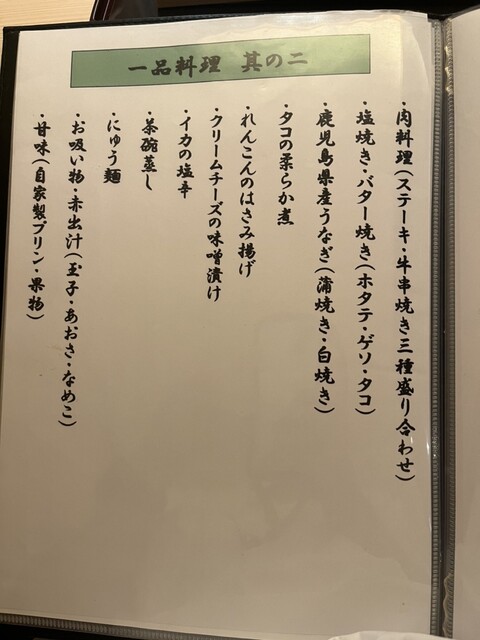 一品料理 其の二
・肉料理(ステーキ・牛串焼き三種盛り合わせ)
・塩焼き・バター焼き(ホタテ・ゲソ・タコ)
・鹿児島県産うなぎ(蒲焼き・白焼き)
・タコの柔らか煮
・れんこんのはさみ揚げ
・クリームチーズの味噌漬け
・イカの塩辛
・茶碗蒸し
・にゅう麺
・お吸い物・赤出汁(玉子・あおさ・なめこ)
・甘味(自家製プリン・果物)